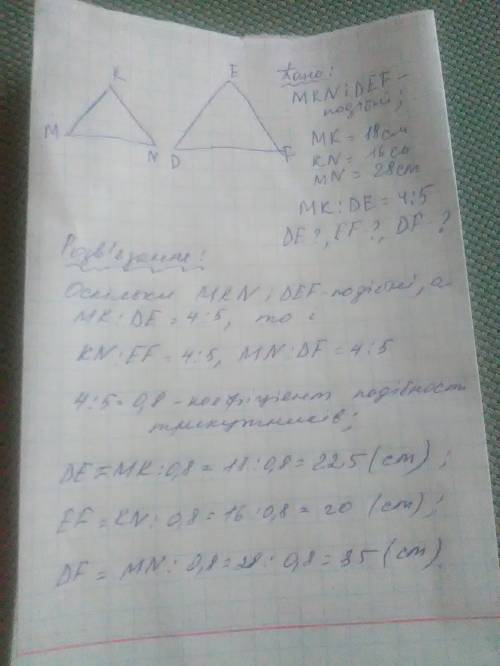 K
M
N
E
D
F
Дано:
MKN i DEF –
подібні;
MK = 18 см
KN = 16 см
MN = 28 cm
MK : DE = 4:5
DE ?, EF ?, DF - ?
Розв'язання:
Оскільки MKN i DEF - подібні, а
MK : DE = 4:5, то і
KN : EF = 4:5, MN : DF = 4:5
4:5 = 0,8 - коефіцієнт подібності
трикутників;
DE = MK : 0,8 = 18 : 0,8 = 22,5 (cm) ;
EF = KN : 0,8 = 16 : 0,8 = 20 (cm) ;
DF = MN : 0,8 = 28 : 0,8 = 35 (cm)